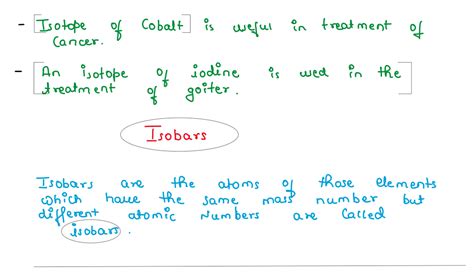 - [Isotope of Cobalt] is useful in treatment of
Cancer.
- [An isotope of iodine is used in the
treatment of goiter.]
Isobars
Isobars are the atoms of those elements
which have the same mass number but
different atomic Numbers are Called
isobars.